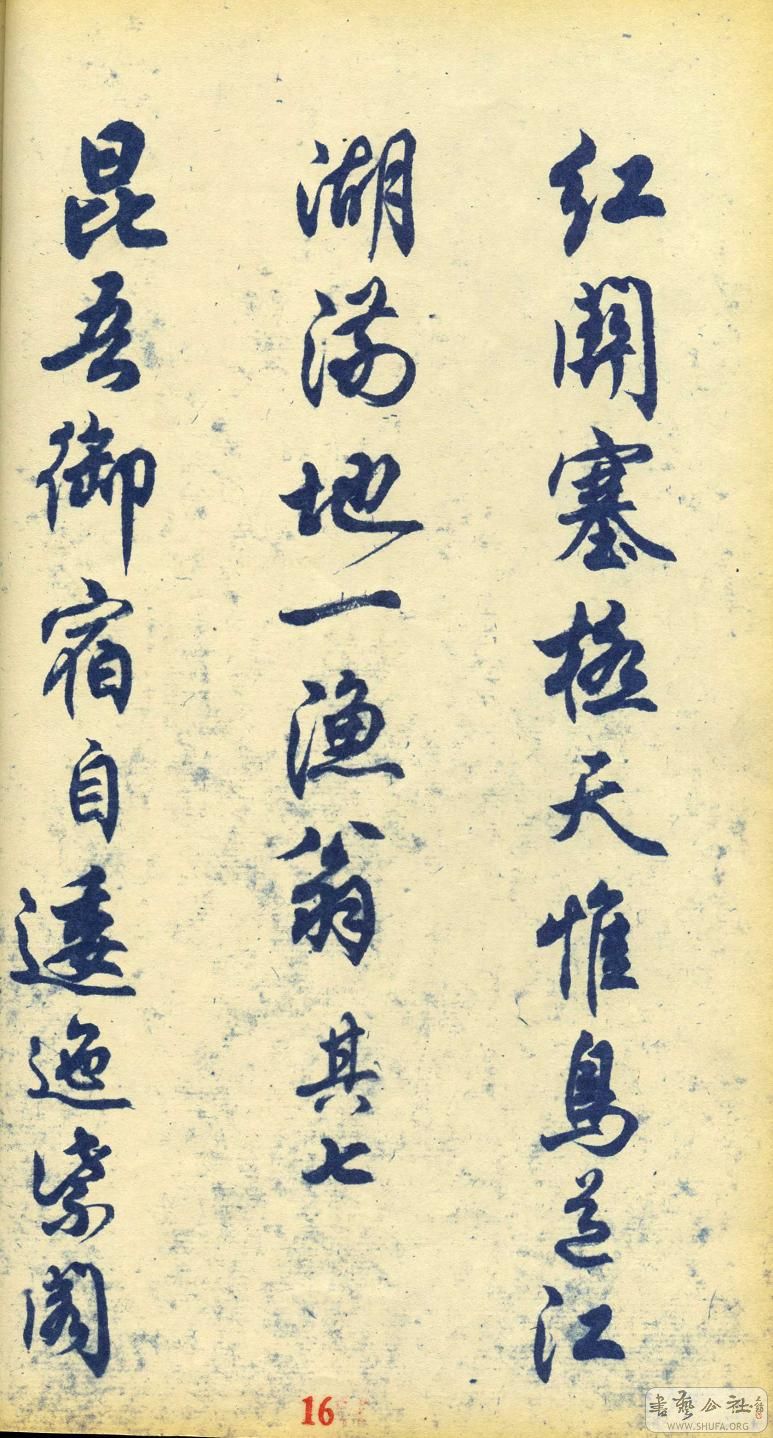 红關塞極天惟鳥道江
湖满地一漁翁其七
昆吾御宿自逶迤紫阁
16
書藝公社
WWW.SHUFA.ORG